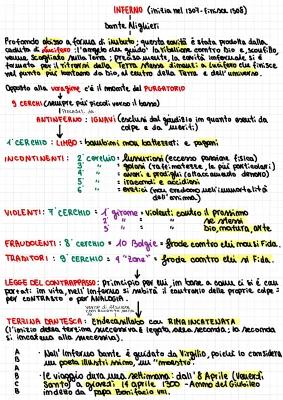 INFERNO (inizio nel 1307 - finisce 1308)
Dante Alighieri
Profondo abisso a forma di imbuto; questa cavità è stata prodotta dalla
caduta di Lucifero: l'angelo che guidò la ribellione contro Dio e, sconfitto,
venne scagliato sulla Terra; precisamente, la cavità infernale si è
formata per il ritrarsi della Terra stessa dinanzi a Lucifero che finisce
nel punto più lontano da Dio, al centro della Terra e dell'universo.
Opposto alla voragine c'è il monte del PURGATORIO
9 CERCHI (sempre più piccoli verso il basso)
ANTINFERNO: IGNAVI (esclusi dal giudizio in quanto esenti da
colpe e da meriti)
1° CERCHIO: LIMBO = bambini non battezzati e pagani
INCONTINENTI: 2° cerchio = lussuriosi (eccesso passione fisica)
3° " = golosi
4° " = avari e prodighi (attaccamento denaro)
5° " = iracondi e accidiosi
6° " = eretici (non credono nell'immortalità
dell'anima)
VIOLENTI: 7° CERCHIO = 1° girone = violenti contro il prossimo
2° " = " se stessi
3° " = " Dio, natura, arte
FRAUDOLENTI: 8° CERCHIO = 10 Bolgie = frode contro chi non si fida
TRADITORI: 9° CERCHIO = 4 "zone" = frode contro chi si fida
LEGGE DEL CONTRAPPASSO: principio per cui, in base a come ci si è com
portati in vita, nell'Inferno si subirà il contrario delle proprie colpe =
per CONTRASTO o per ANALOGIA
TERZINA DANTESCA: Endecasillabo con RIMA INCATENATA
(l'inizio della terzina successiva è legata alla seconda; la seconda
si incatena alla successiva).
A • Nell'Inferno Dante è guidato da Virgilio, poiché lo considera
B un poeta illustrissimo, un "maestro".
A
B • Il viaggio dura una settimana: dall'8 Aprile (Venerdì
C Santo) a giovedì 14 aprile 1300 - Anno del Giubileo
B indetto da papa Bonifacio VIII.